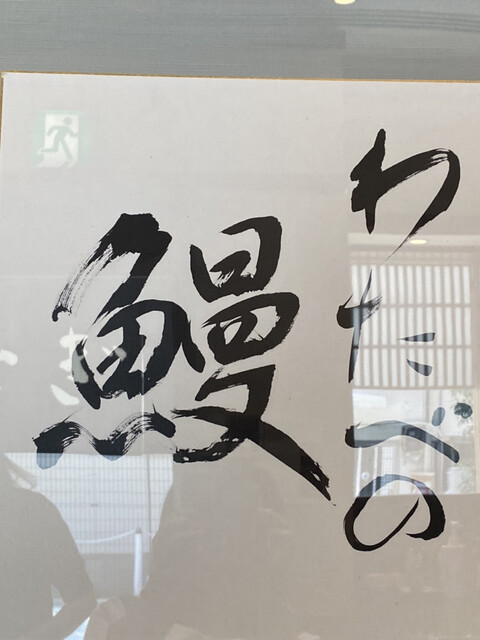 わたべの
鰻